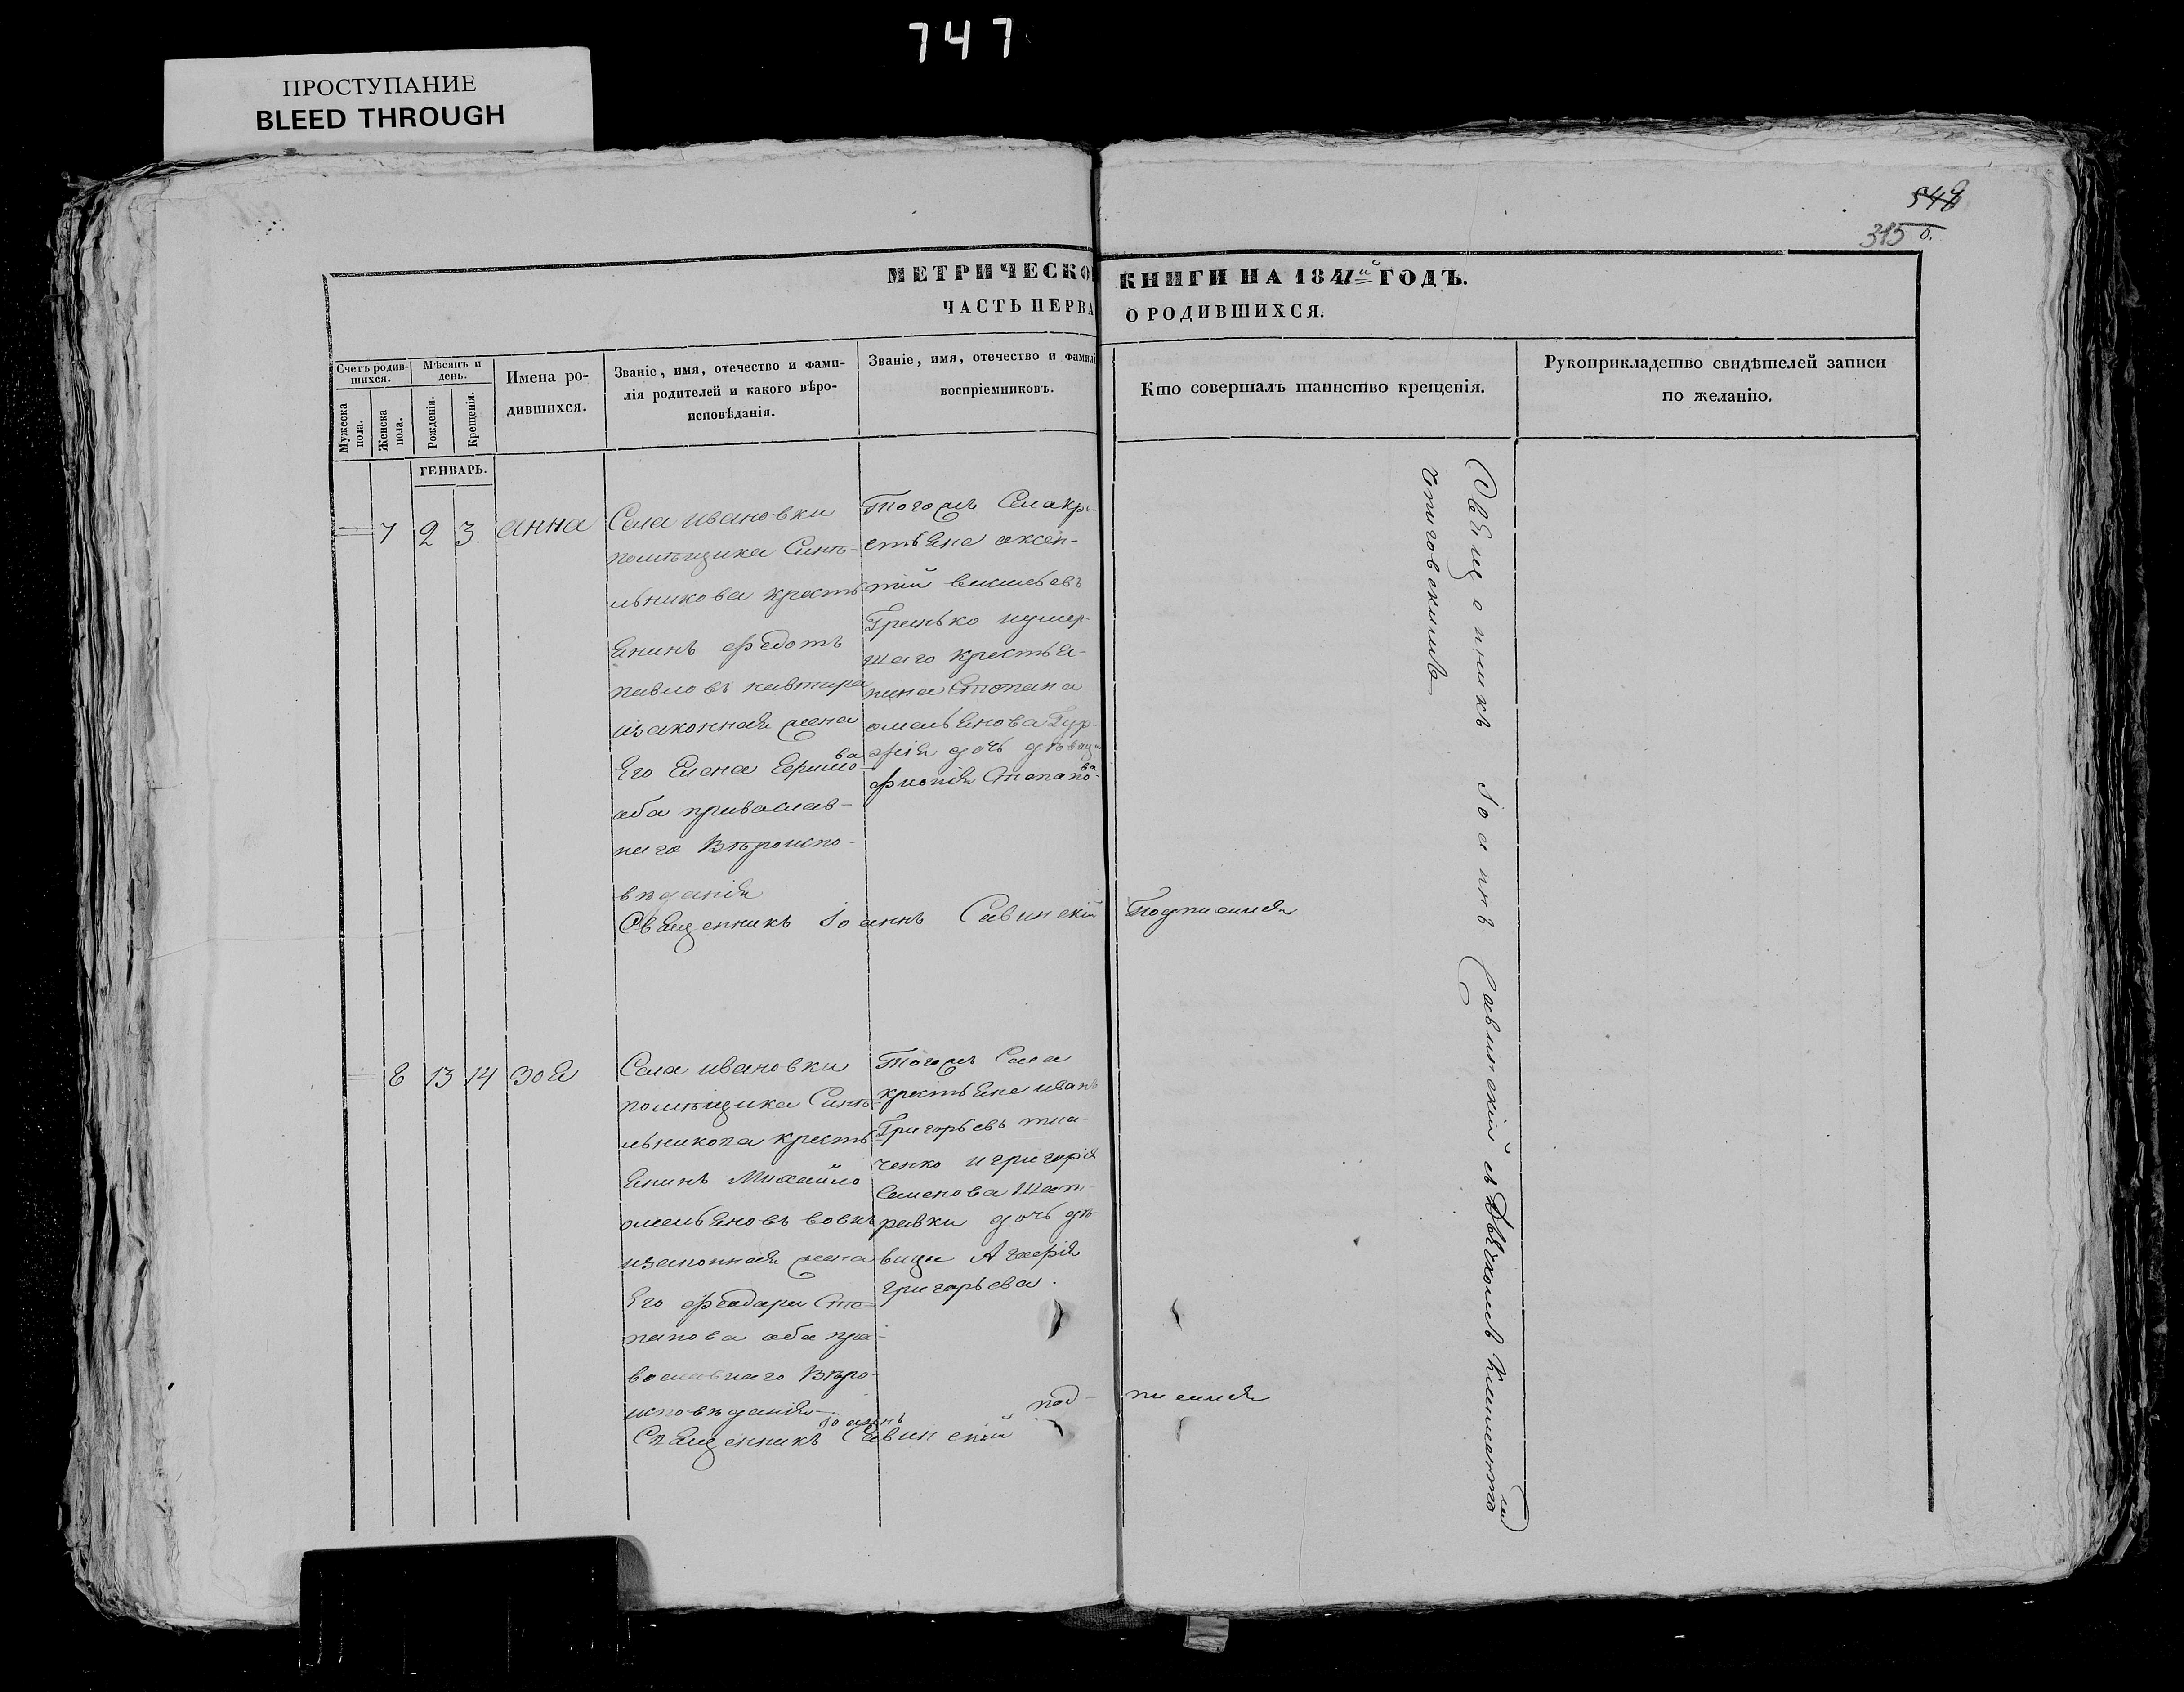 747
ПРОСТУПАНИЕ
BLEED THROUGH
548
315 б.
МЕТРИЧЕСКО КНИГИ НА 1841й ГОДЪ.
ЧАСТЬ ПЕРВА О РОДИВШИХСЯ.
Счетъ родив-
шихся.
Мужеска
пола.
Женска
пола.
Мѣсяцъ и
день.
Рожденія.
Крещенія.
Имена ро-
дившихся.
Званіе, имя, отечество и фами-
лія родителей и какого вѣро-
исповѣданія.
Званіе, имя, отечество и фамилі
воспріемниковъ.
Кто совершалъ таинство крещенія.
Рукоприкладство свидѣтелей записи
по желанію.
ГЕНВАРЬ.
7 2 3. анна
Села ивановки
помѣщика Синь-
льникова кресть
янинъ федотъ
павловъ
изаконная жена
Его Елена
оба праваслав-
наго Вѣроиспо-
вѣданія
Тогожъ Села кре-
стьяне аксен-
тий
Гренько иумер-
шаго крестья-
нина Степана
омельянова
дочь дѣвица
Степанова
Священникъ Іоаннъ Савинскій Подписался
8 13 14 Зоя
Села ивановки
помѣщика Синь-
льникова кресть
янинъ Михайло
омельяновъ вовкъ
изаконная жена
Его феодара Сте-
панова оба пра-
вославнаго Вѣро-
исповѣданія
Тогожъ Села
крестьяне иванъ
Григорьевъ тка-
ченко игригорія
Семенова Шат-
равки дочь дѣ-
вица Агафія
григорьева.
Священникъ Іоаннъ Савинскій под- писался
Священникъ Іоаннъ Савинскій съ Дьячкомъ Климентомъ